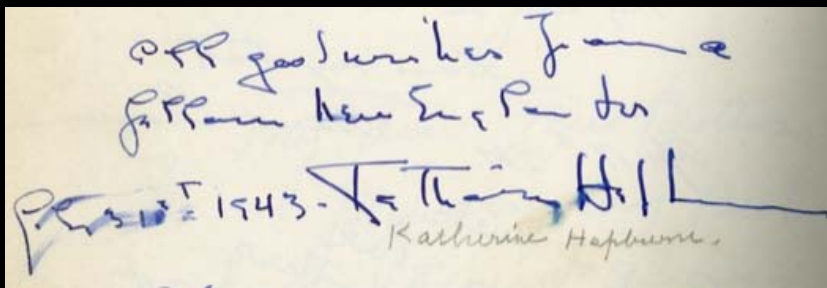 All good wishes from a
fellow New Englander
31st 1943 - Katharine Hepburn
Katherine Hepburn.